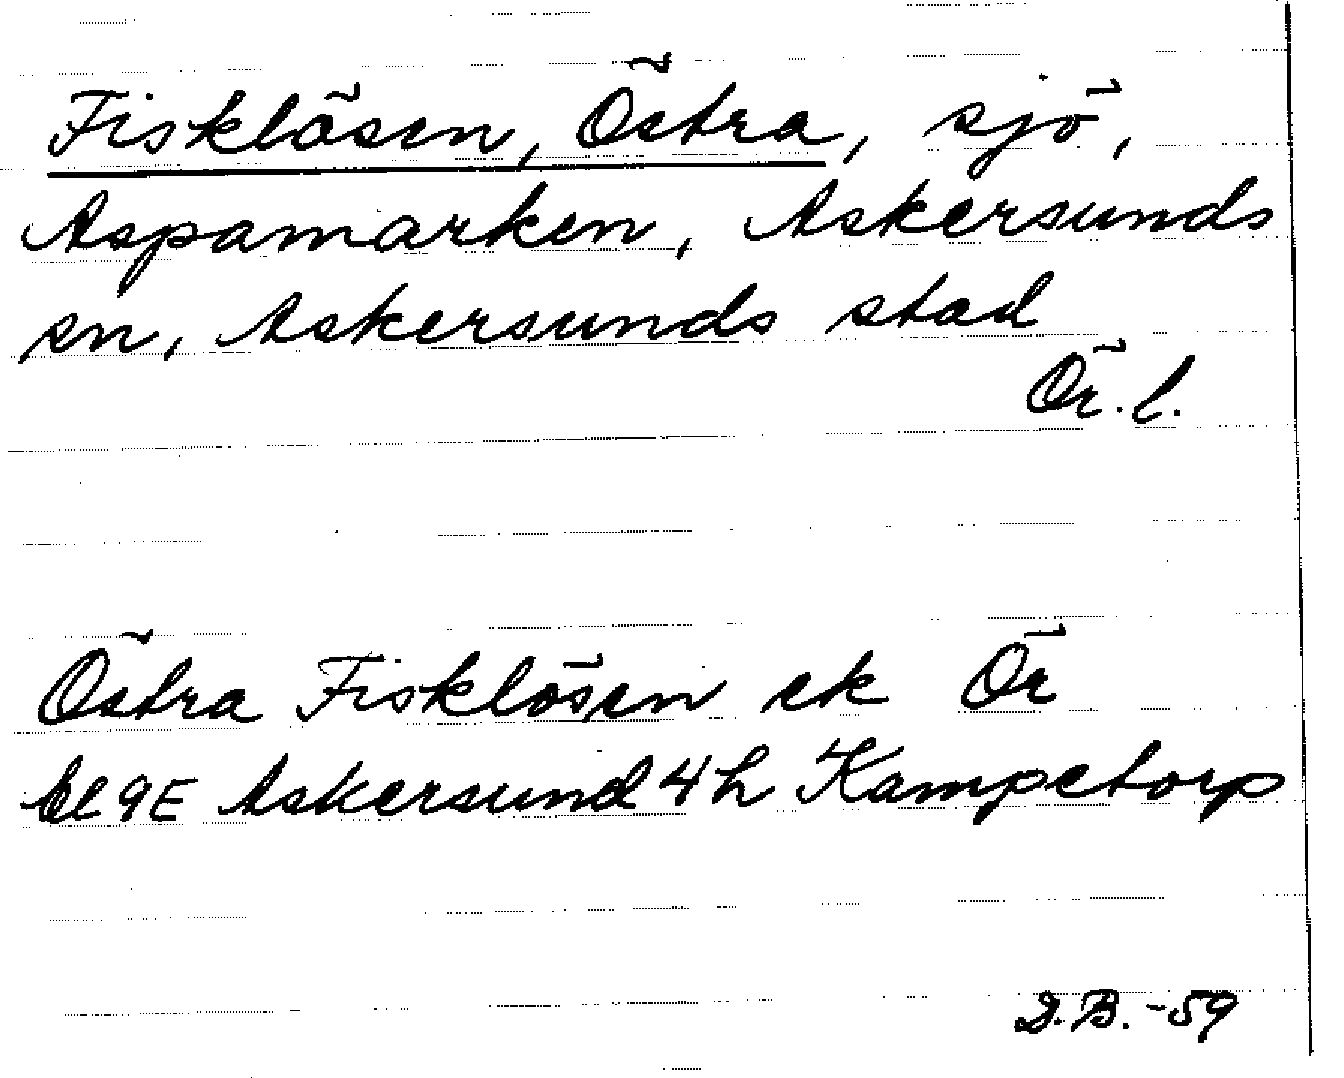 Fisklösen, Östra, sjö,
Aspamarken, Askersunds
sn, Askersunds stad
Ör. l.
Östra Fisklösen ek Ör
Bl 9E Askersund 4h Kampetorp
D.B. -59